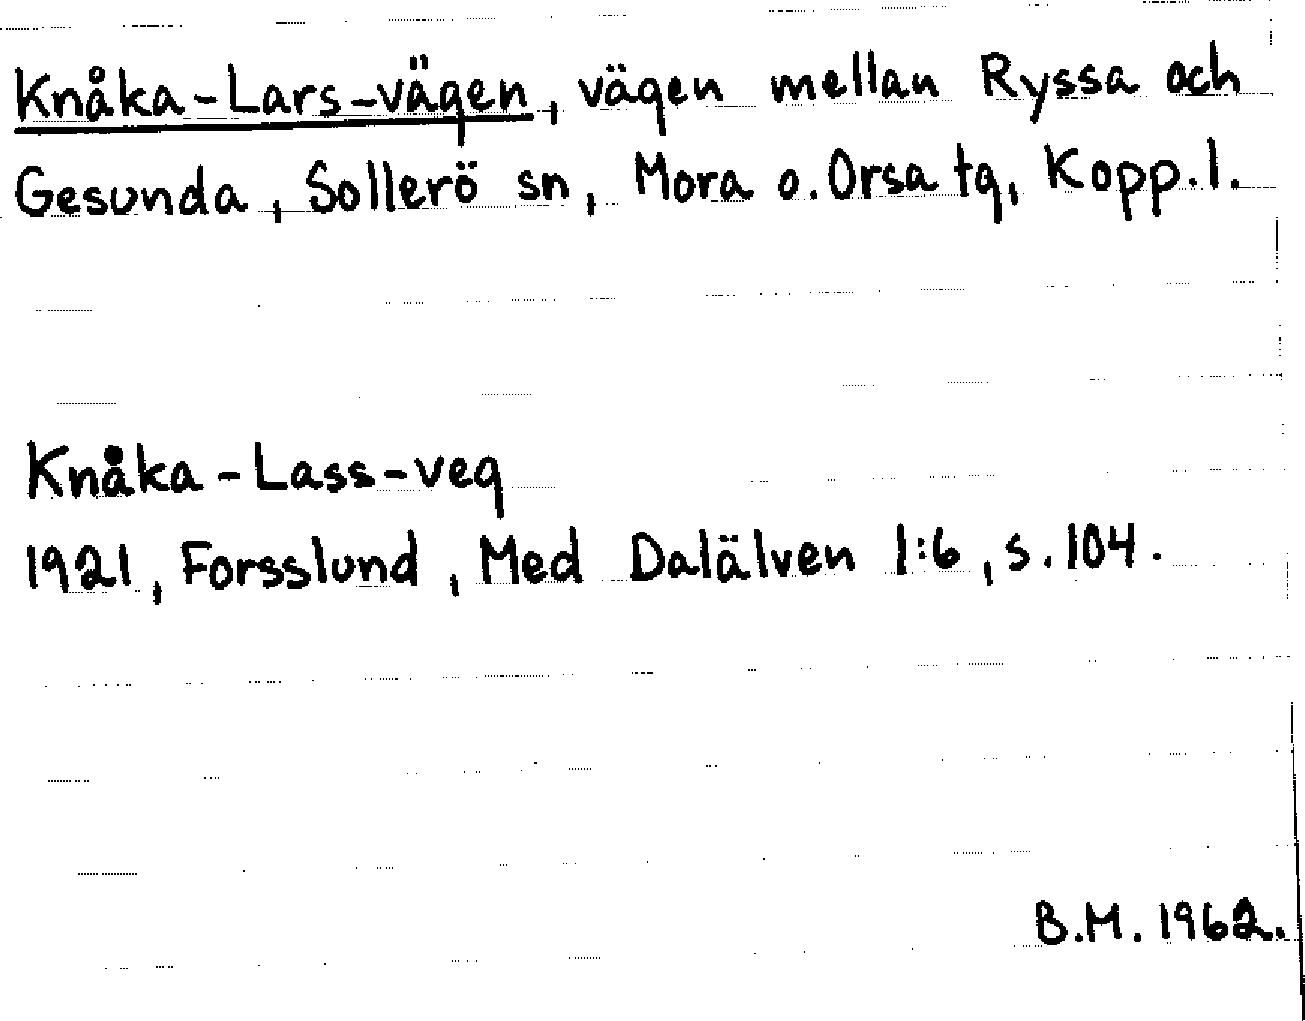 Knåka-Lars-vägen, vägen mellan Ryssa och
Gesunda, Sollerö sn, Mora o. Orsa tg, Kopp. l.
Knåka-Lass-veg
1921, Forsslund, Med Dalälven 1:6, s. 104.
B.M. 1962.